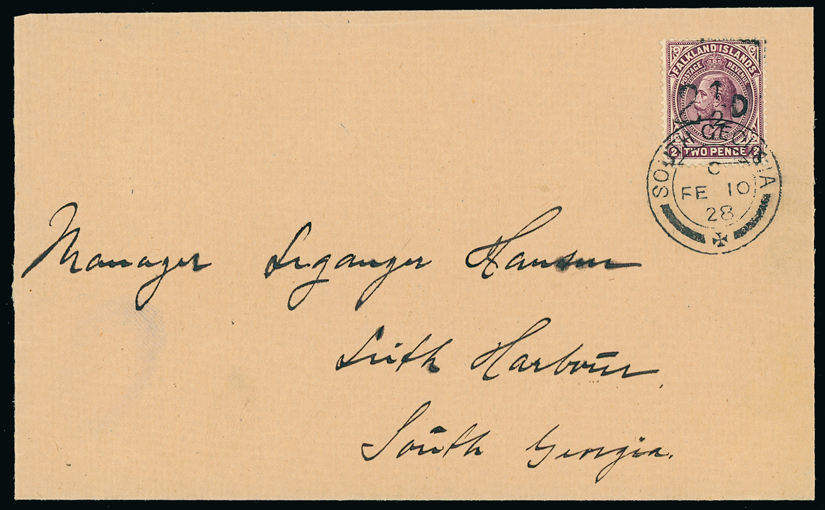 FALKLAND ISLANDS
POSTAGE REVENUE
2½D
TWO PENCE
SOUTH GEORGIA
C
FE 10
28
Manager Leganger Hansen
Leith Harbour
South Georgia.